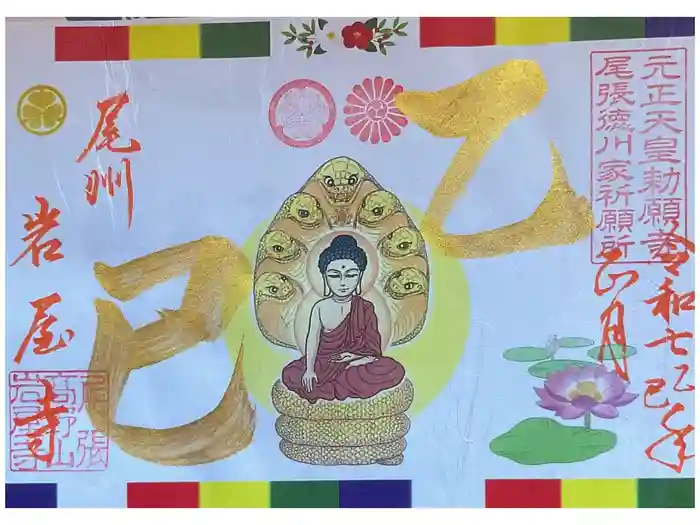 元正天皇勅願寺
尾張徳川家祈願所
令和七乙巳年
正月
乙巳
尾州
岩屋寺